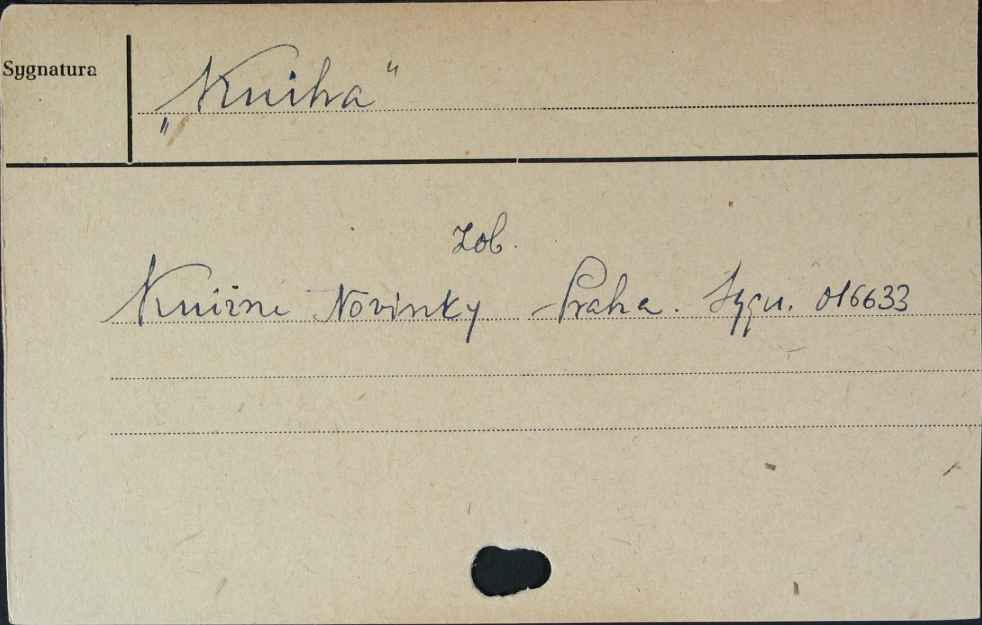 Sygnatura
„Kniha"
Zob.
Knižne Novinky Praha. Sygn. 016633